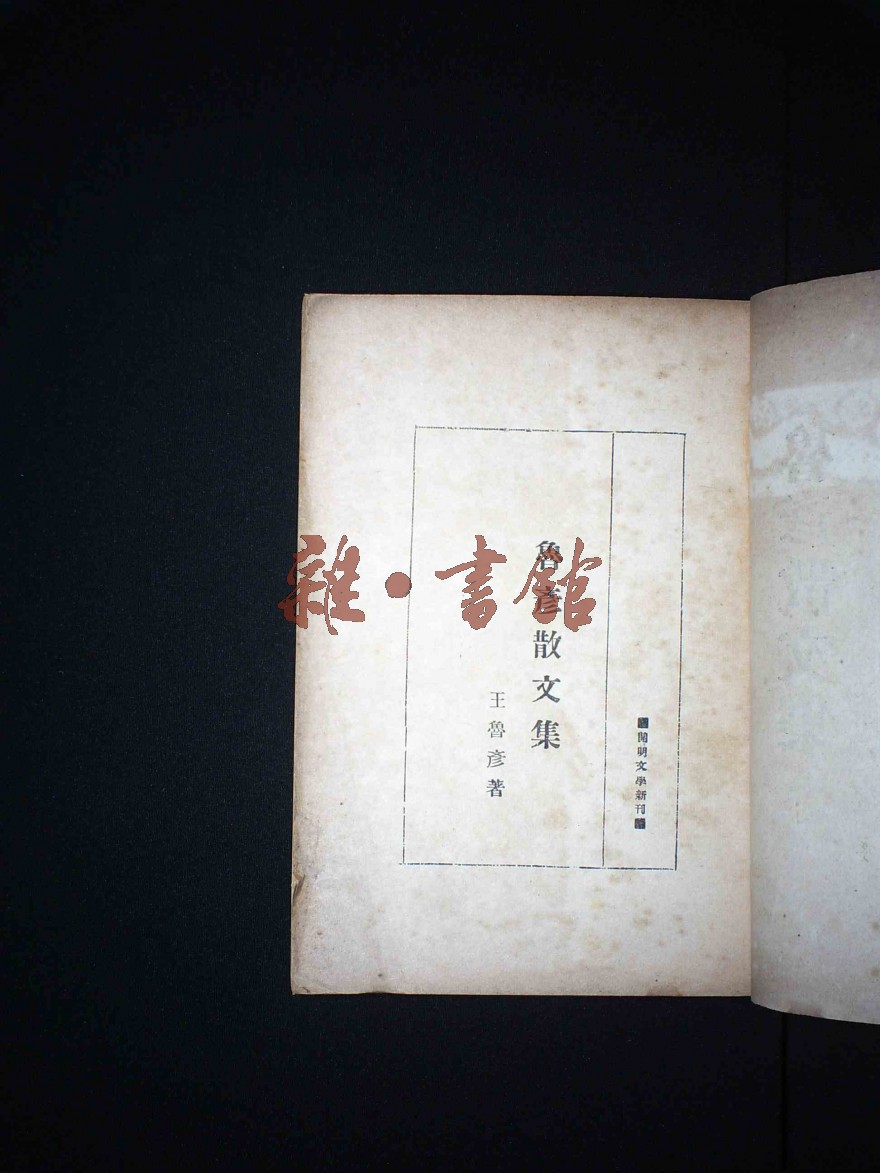 開明文學新刊
魯彥散文集
王魯彥著
雜·書館